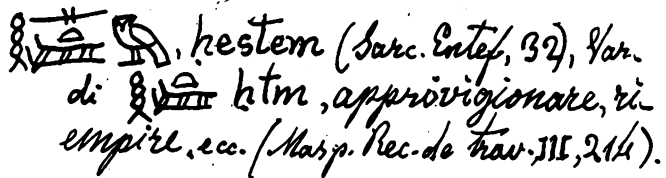 𓎛𓊃𓏏𓅓, hestem (Sarc. Entef, 32), Var.
di 𓎛𓏏 htm, approvigionare, ri-
empire, ecc. (Masp. Rec. de trav. III, 214).